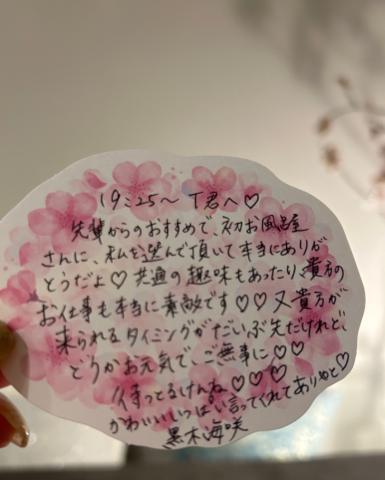 19:25～ T君へ♡
先輩からのおすすめで、初お風呂屋
さんに、私を選んで頂いて本当にありが
とうだよ♡ 共通の趣味もあったり、貴方の
お仕事も本当に素敵です♡♡ 又貴方が
来られるタイミングがだいぶ先だけれど、
どうかお元気で、ご無事に♡♡
待っとるけんね♡♡♡
かわいいいっぱい言ってくれてありがと♡
黒木海咲